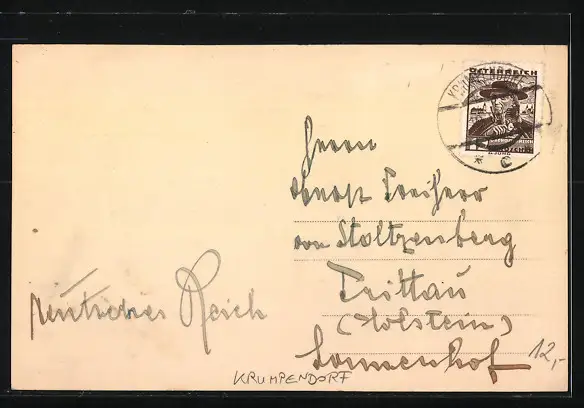 ÖSTERREICH
Herrn
Ernst Freiherr
von Stoltzenberg
Trittau
(Holstein)
Sonnenhof
Deutsches Reich
KRUMPENDORF
12,-